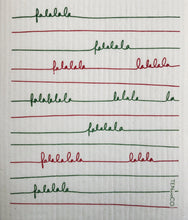 falalala
falalala
falalala lalalala
falalalala lalala la
falalala
falalalala lalala
falalala